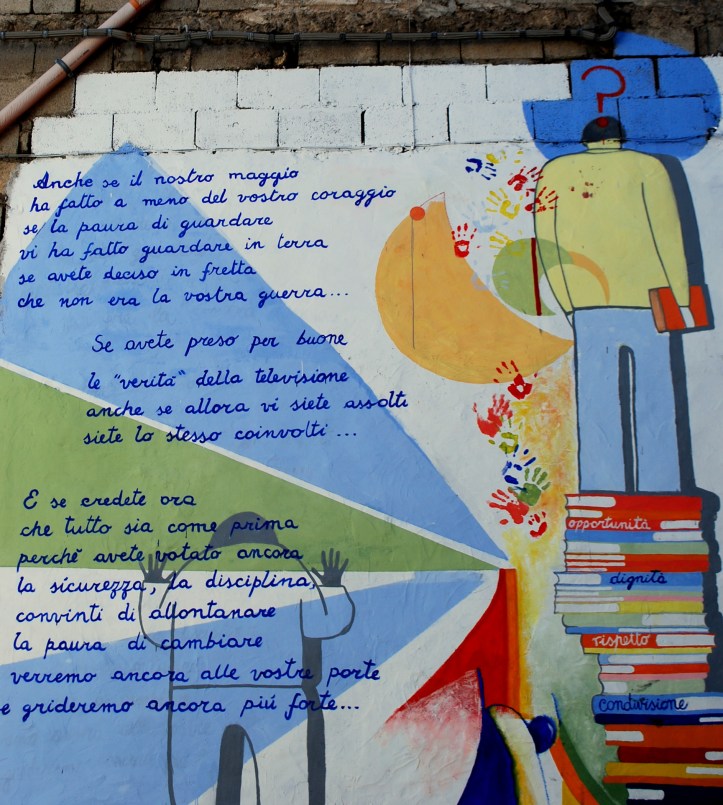 Anche se il nostro maggio
ha fatto a meno del vostro coraggio
se la paura di guardare
vi ha fatto guardare in terra
se avete deciso in fretta
che non era la vostra guerra...
Se avete preso per buone
le "verità" della televisione
anche se allora vi siete assolti
siete lo stesso coinvolti...
E se credete ora
che tutto sia come prima
perchè avete votato ancora
la sicurezza, la disciplina,
convinti di allontanare
la paura di cambiare
verremo ancora alle vostre porte
e grideremo ancora piú forte...
?
opportunità
dignità
rispetto
condivisione